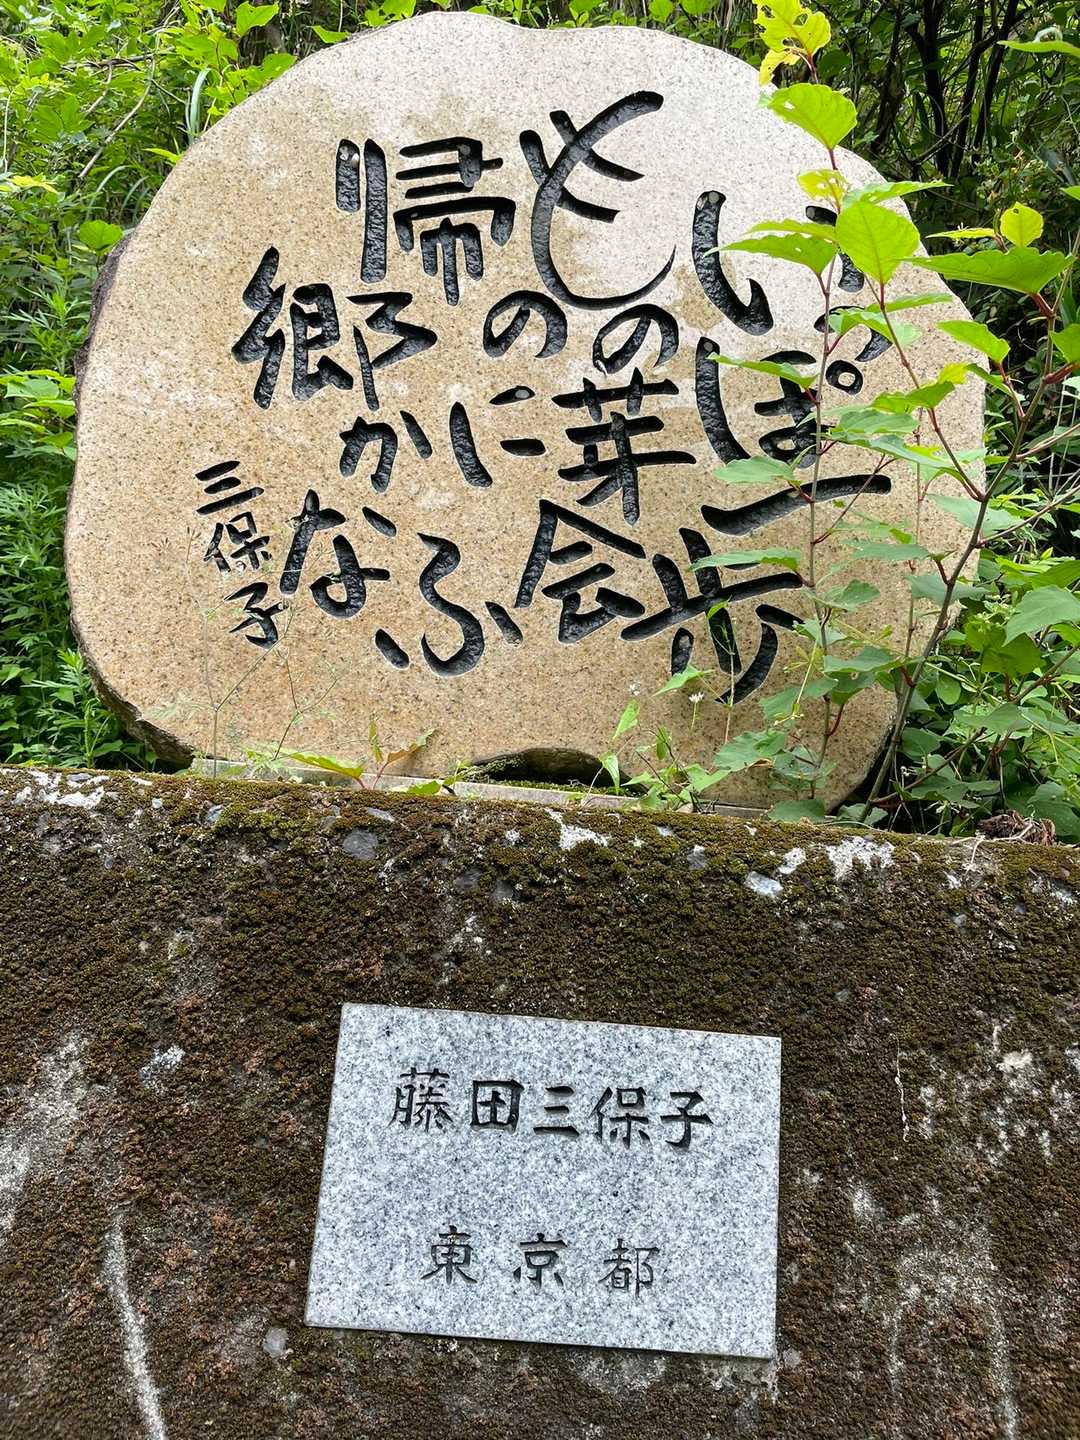 いっぽ一歩
ものの芽に会ふ
帰郷かな
三保子
藤田三保子
東京都